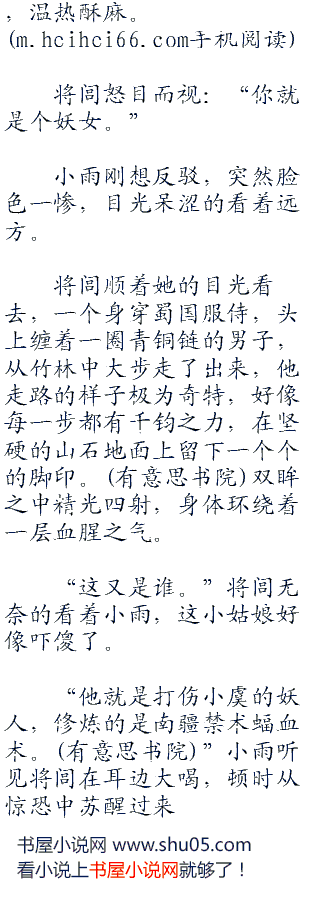 ，温热酥麻。
(m.hcihci66.com手机阅读)
将闾怒目而视：“你就
是个妖女。”
小雨刚想反驳，突然脸
色一惨，目光呆涩的看着远
方。
将闾顺着她的目光看
去，一个身穿蜀国服侍，头
上缠着一圈青铜链的男子，
从竹林中大步走了出来，他
走路的样子极为奇特，好像
每一步都有千钧之力，在坚
硬的山石地面上留下一个个
的脚印。(有意思书院)双眸
之中精光四射，身体环绕着
一层血腥之气。
“这又是谁。”将闾无
奈的看着小雨，这小姑娘好
像吓傻了。
“他就是打伤小虞的妖
人，修炼的是南疆禁术蝠血
术。(有意思书院)”小雨听
见将闾在耳边大喝，顿时从
惊恐中苏醒过来
书屋小说网 www.shu05.com
看小说上书屋小说网就够了！